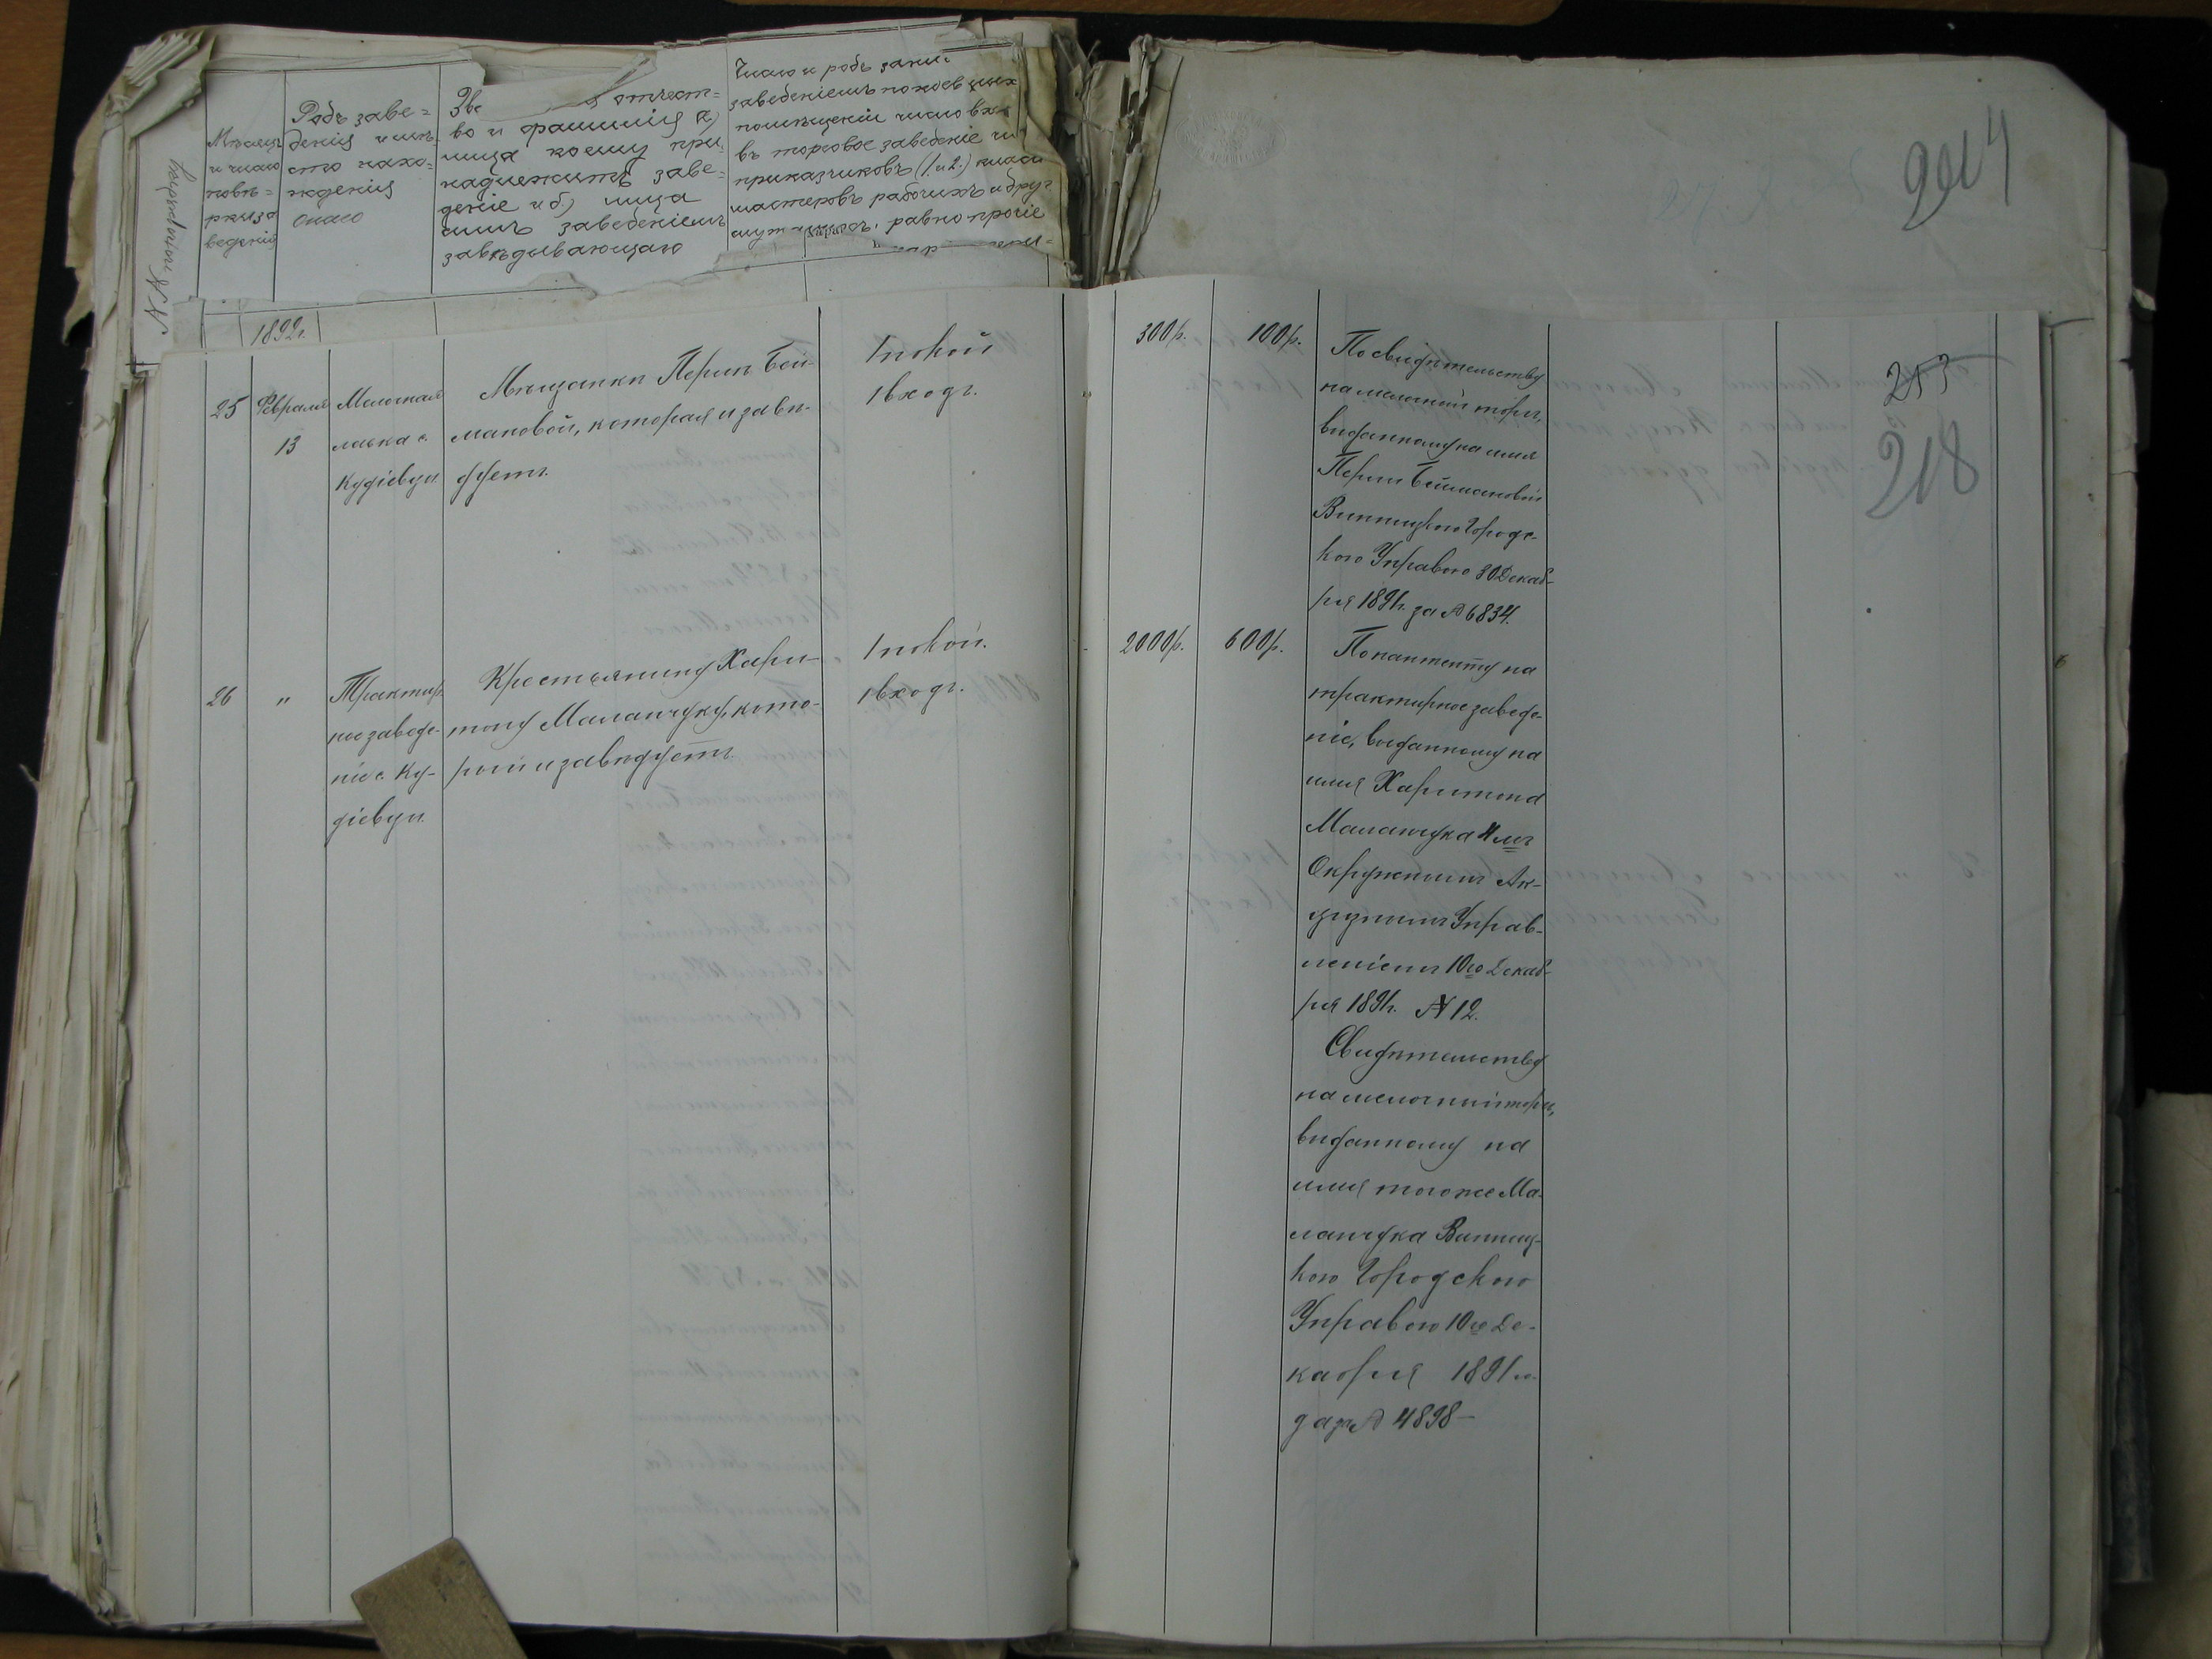 по порядку №№
Мѣсяцъ
и число
повѣ=
рки за
веденія
Родъ заве=
денія и мѣ-
сто нахо=
жденія
онаго
Зва отчест=
во и фамилія а)
лица коему при-
надлежитъ заве=
деніе и б) лица
симъ заведеніемъ
завѣдывающаго
Число и родъ
заведеніемъ покоевъ
помѣщеній число
въ торговое заведеніе
приказчиковъ (1 и 2)
мастеровъ рабочихъ и друг
равно прочіе
1892г.
25
Февраля
13
Мелочная
лавка с.
Кудіевцы
Мѣщанки Перли Бей-
мановой, которая и завѣ-
дуетъ.
1 покой
1 входъ.
300 р.
100 р.
По свидѣтельству
на мелочный торгъ,
выданному на имя
Перли Беймановой
Винницкою Городс-
кою Управою 30 Декаб-
ря 1891г. за № 6834.
26
"
Трактир
ное заведе-
ніе с. Ку-
діевцы.
Крестьянину Хари-
тону Маланчуку, кото-
рый и завѣдуетъ.
1 покой.
1 входъ.
2000 р.
600 р.
По патенту на
трактирное заведе-
ніе, выданному на
имя Харитона
Маланчука 4мъ
Окружнымъ Ак-
цизнымъ Управ-
леніемъ 10го Декаб-
ря 1891г. № 12.
Свидѣтельству
на мелочный торгъ,
выданному на
имя того же Ма-
ланчука Винниц-
кою Городскою
Управою 10го Де-
кабря 1891 го-
да за № 4898 —
253
218